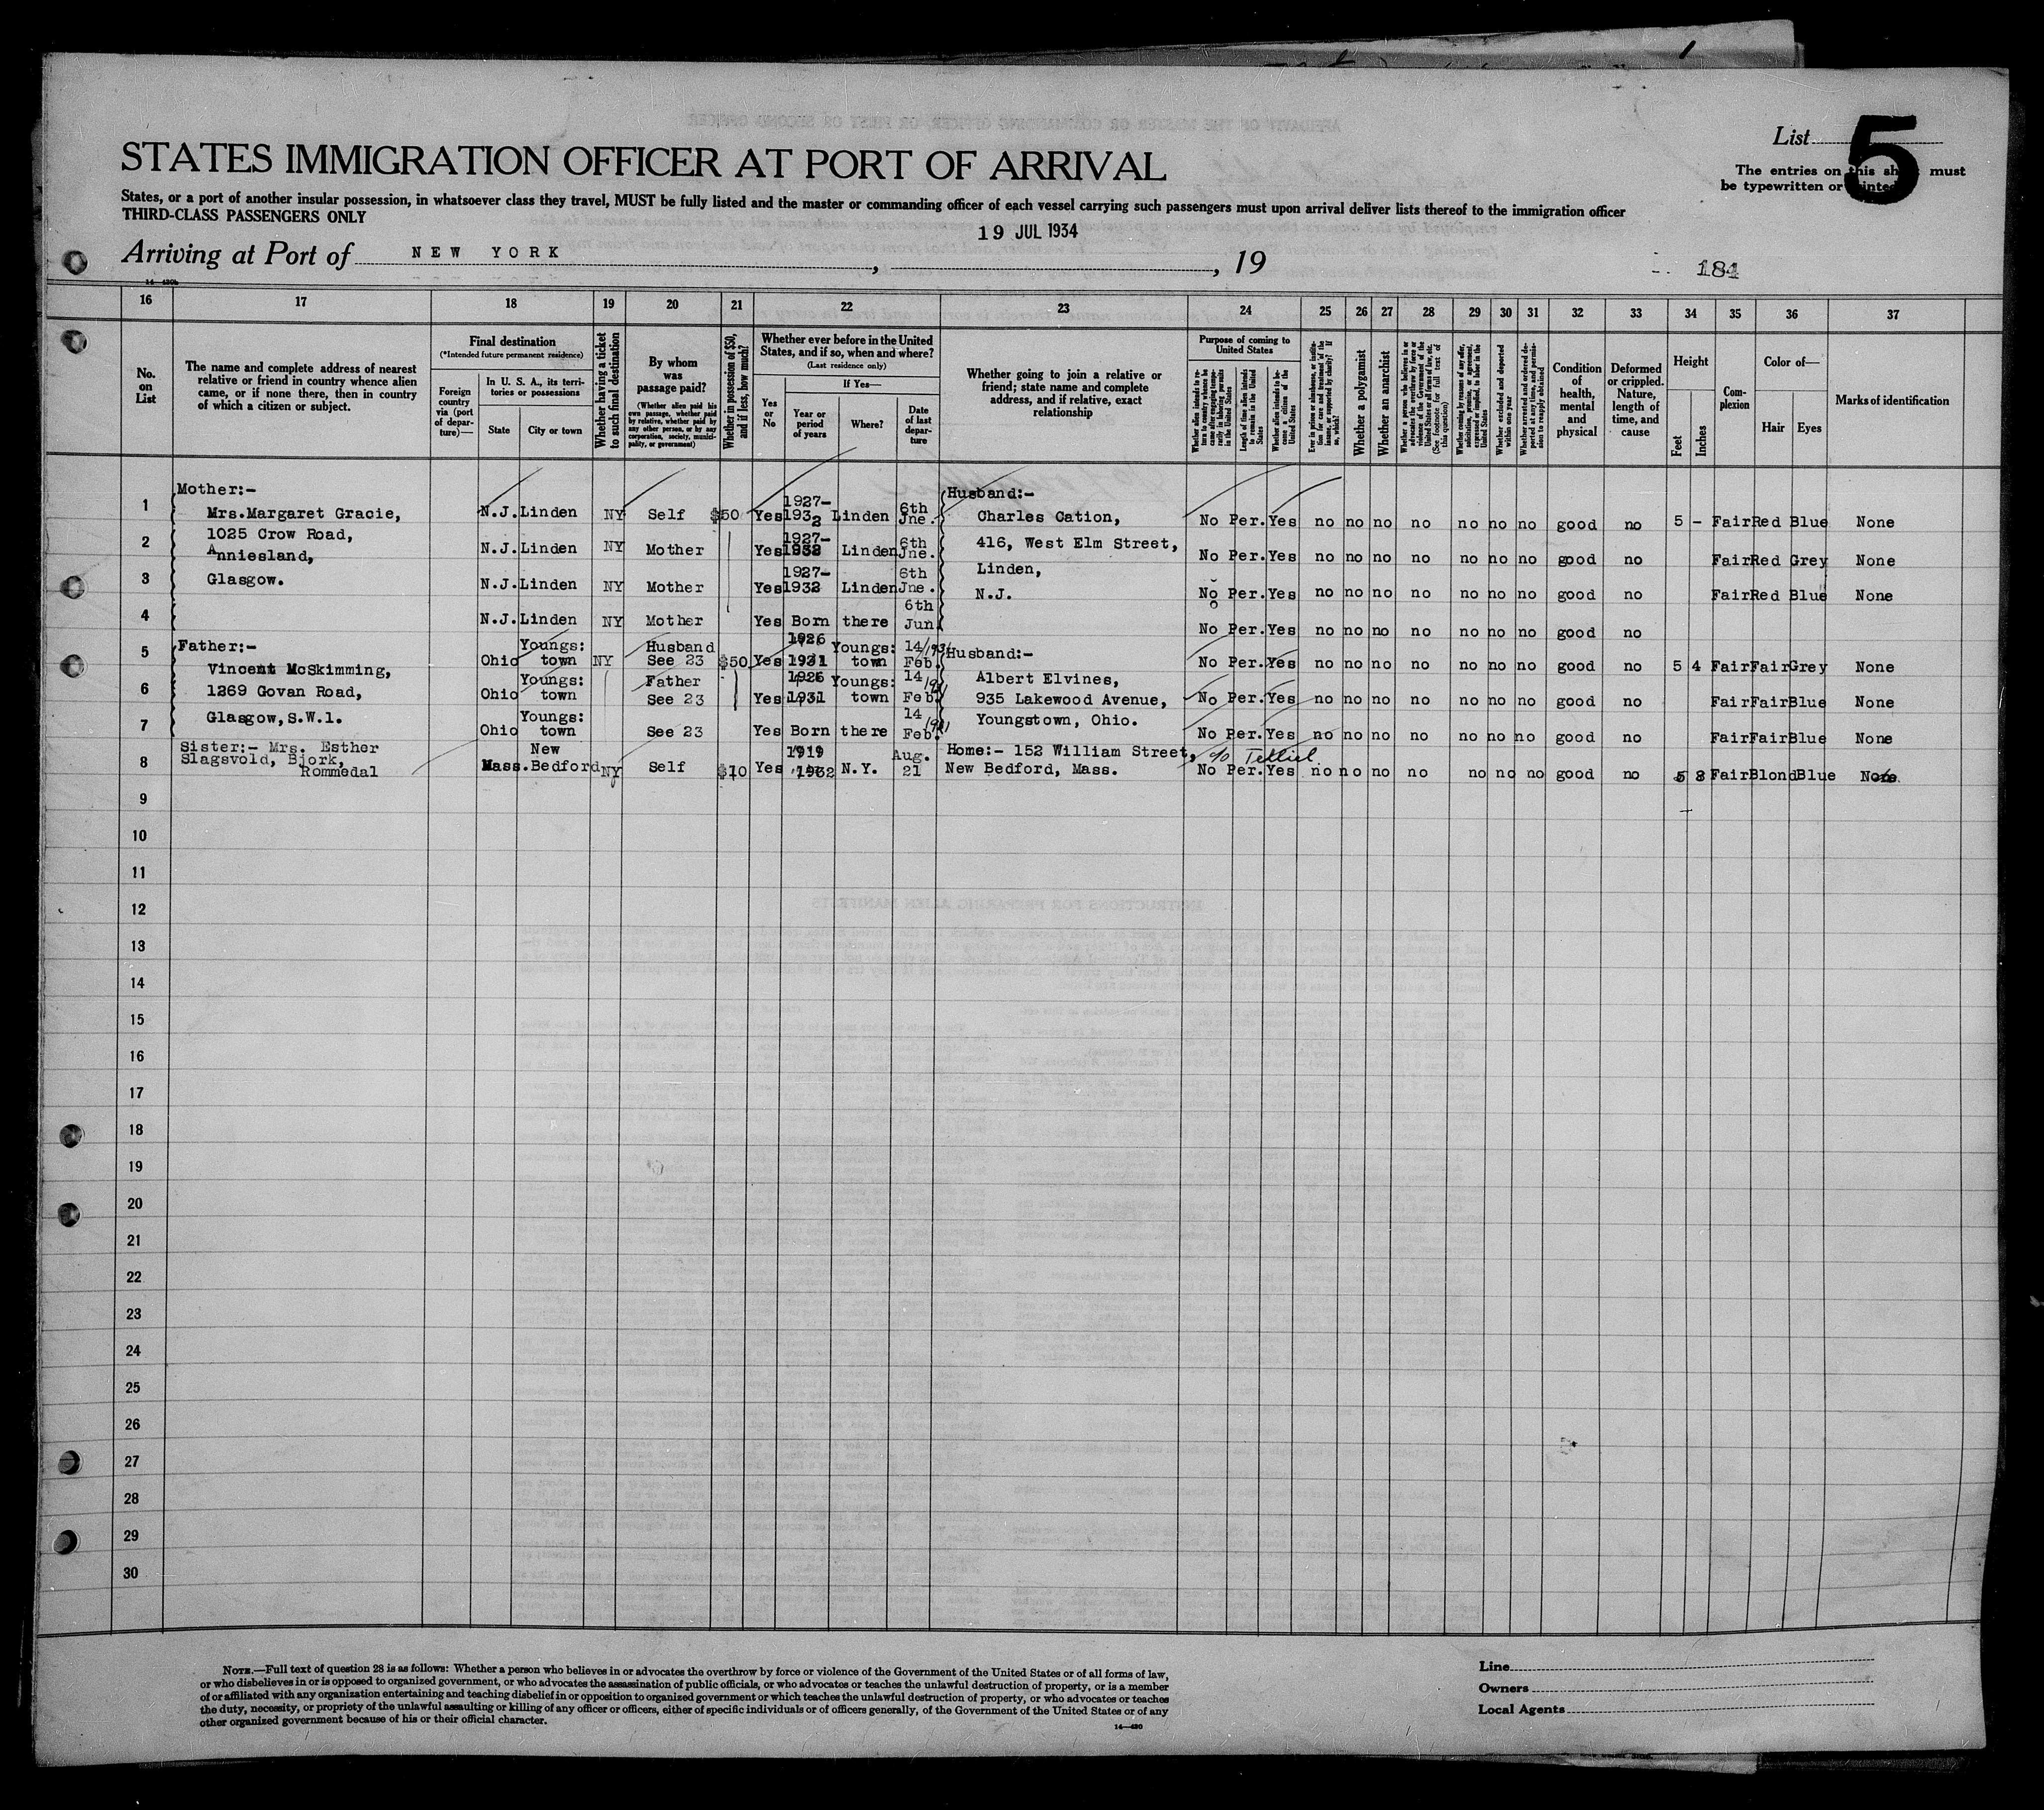 List 5
STATES IMMIGRATION OFFICER AT PORT OF ARRIVAL
The entries on this sheet must
be typewritten or printed
States, or a port of another insular possession, in whatsoever class they travel, MUST be fully listed and the master or commanding officer of each vessel carrying such passengers must upon arrival deliver lists thereof to the immigration officer
THIRD-CLASS PASSENGERS ONLY
19 JUL 1934
Arriving at Port of NEW YORK , , 19
184
16 17 18 19 20 21 22 23 24 25 26 27 28 29 30 31 32 33 34 35 36 37
No. on List
The name and complete address of nearest relative or friend in country whence alien came, or if none there, then in country of which a citizen or subject.
Final destination
(*Intended future permanent residence)
Foreign country via (port of departure)—
In U. S. A., its territories or possessions
State
City or town
Whether having a ticket to such final destination
By whom was passage paid?
(Whether alien paid his own passage, whether paid by relative, whether paid by any other person, or by any corporation, society, municipality, or government)
Whether in possession of $50, and if less, how much?
Whether ever before in the United States, and if so, when and where?
(Last residence only)
Yes or No
If Yes—
Year or period of years
Where?
Date of last departure
Whether going to join a relative or friend; state name and complete address, and if relative, exact relationship
Purpose of coming to United States
Length of time alien intends to remain in the United States
Whether alien intends to become a citizen of the United States
Whether a polygamist
Whether an anarchist
Condition of health, mental and physical
Deformed or crippled. Nature, length of time, and cause
Height
Feet
Inches
Complexion
Color of—
Hair
Eyes
Marks of identification
Mother:-
Mrs.Margaret Gracie,
1025 Crow Road,
Anniesland,
Glasgow.
Husband:-
Charles Cation,
416, West Elm Street,
Linden,
N.J.
1 N.J. Linden NY Self $50 Yes 1927-1932 Linden 6th Jne. No Per. Yes no no no no no no no good no 5 - Fair Red Blue None
2 N.J. Linden NY Mother Yes 1927-1932 Linden 6th Jne. No Per. Yes no no no no no no no good no Fair Red Grey None
3 N.J. Linden NY Mother Yes 1927-1932 Linden 6th Jne. No Per. Yes no no no no no no no good no Fair Red Blue None
4 N.J. Linden NY Mother Yes Born there 6th Jun No Per. Yes no no no no no no no good no
Father:-
Vincent McSkimming,
1269 Govan Road,
Glasgow, S.W.1.
Husband:-
Albert Elvines,
935 Lakewood Avenue,
Youngstown, Ohio.
5 Ohio Youngs: town NY Husband See 23 $50 Yes 1926 1931 Youngs: town 14/1931 Feb. No Per. Yes no no no no no no no good no 5 4 Fair Fair Grey None
6 Ohio Youngs: town Father See 23 Yes 1926 1931 Youngs: town 14 Feb. No Per. Yes no no no no no no no good no Fair Fair Blue None
7 Ohio Youngs: town See 23 Yes Born there 14 Feb. No Per. Yes no no no no no no no good no Fair Fair Blue None
Sister:- Mrs. Esther
Slagsvold, Bjork,
Rommedal
Home:- 152 William Street, c/o
New Bedford, Mass.
8 Mass. New Bedford NY Self $10 Yes 1919 1932 N.Y. Aug. 21 No Per. Yes no no no no no no no good no 5 8 Fair Blond Blue None
9
10
11
12
13
14
15
16
17
18
19
20
21
22
23
24
25
26
27
28
29
30
NOTE.—Full text of question 28 is as follows: Whether a person who believes in or advocates the overthrow by force or violence of the Government of the United States or of all forms of law,
or who disbelieves in or is opposed to organized government, or who advocates the assassination of public officials, or who advocates or teaches the unlawful destruction of property, or is a member
of or affiliated with any organization entertaining and teaching disbelief in or opposition to organized government or which teaches the unlawful destruction of property, or who advocates or teaches
the duty, necessity, or propriety of the unlawful assaulting or killing of any officer or officers, either of specific individuals or of officers generally, of the Government of the United States or of any
other organized government because of his or their official character.
14—420
Line
Owners
Local Agents